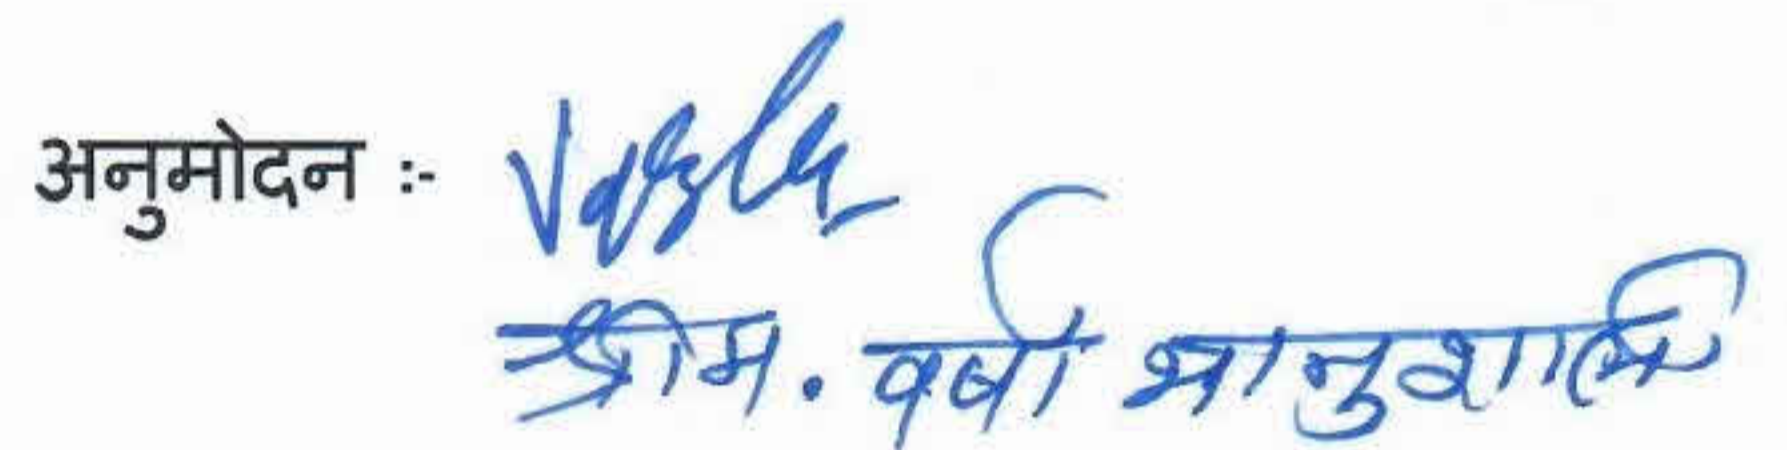 अनुमोदन :-
श्रीम. वर्षा भानुशाली